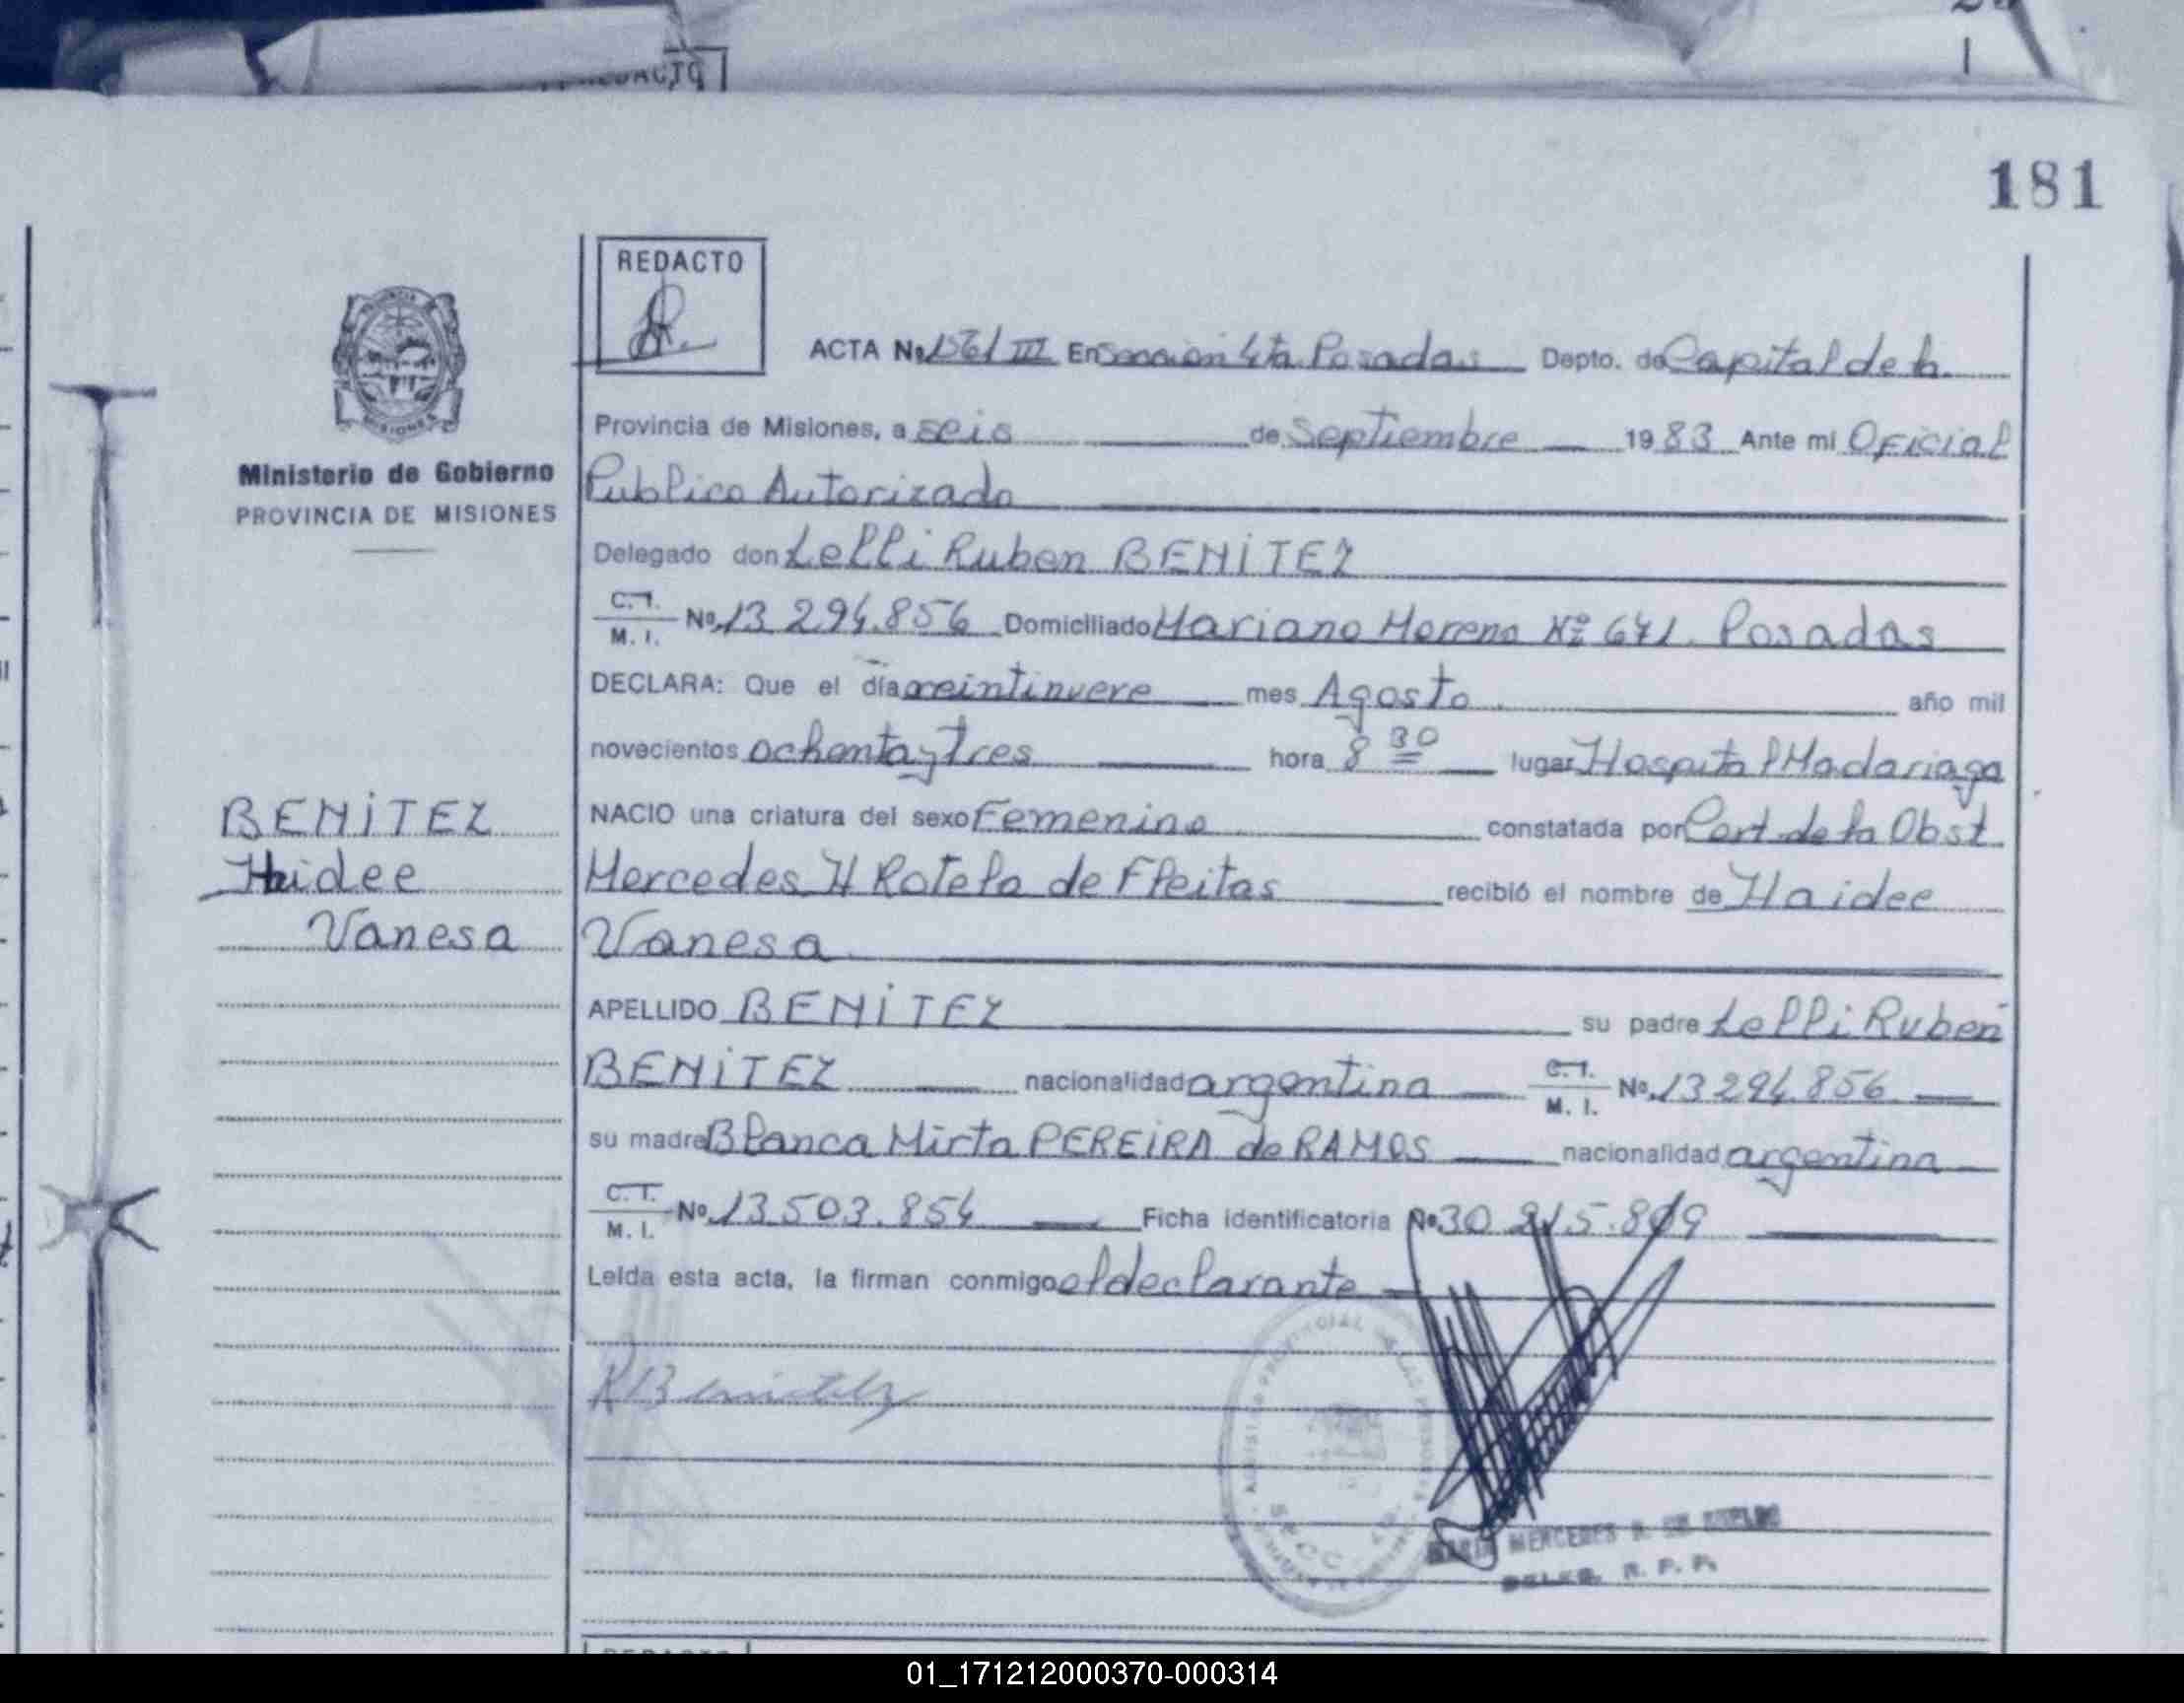 181
REDACTO
ACTA Nº 1561 III En Sección 4ta Posadas Depto. de Capital de la
Provincia de Misiones, a seis de Septiembre 1983 Ante mi Oficial
Ministerio de Gobierno
PROVINCIA DE MISIONES
Publico Autorizado
Delegado don Lelli Ruben BENITEZ
C.I. M. I. Nº 13 294.856 Domiciliado Mariano Moreno Nº 671. Posadas
DECLARA: Que el día veintinueve mes Agosto año mil
novecientos ochenta y tres hora 8 30 lugar Hospital Madariaga
NACIO una criatura del sexo Femenino constatada por Cert de la Obst
Mercedes H Rotela de Fleitas recibió el nombre de Haidee
Vanesa
BENITEZ
Haidee
Vanesa
APELLIDO BENITEZ su padre Lelli Ruben
BENITEZ nacionalidad argentina C.I. M. I. Nº 13 294.856
su madre Blanca Mirta PEREIRA de RAMOS nacionalidad argentina
C.I. M. I. Nº 13 503.854 Ficha identificatoria Nº 30
Leida esta acta, la firman conmigo el declarante
R Benitez
SECC
MERCEDES
R. P. P.
01_171212000370-000314